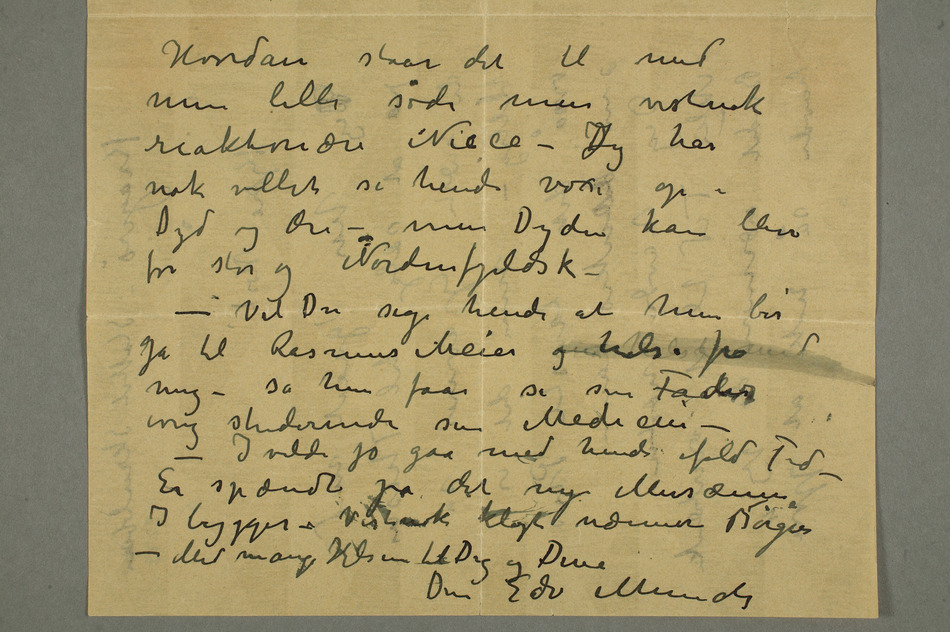 Hvordan staar det til med
min lille søde men vistnok
reaktionære Niece – Jeg har
nok villet se hende voxe op i
Dyd og Ære – men Dyden kan blive
for stor og Nordenfjeldsk –
– Vil Du sige hende at hun bør
gå til Rasmus Meier og hilse fra
mig – så hun faar se sin Fader
ivrig studerende sin Medicin –
– I vilde jo gaa med hende ifald Tid –
Er spændt på det nye Musæum
I bygger – Vistnok klogt nærmere Børgen
– Med mange Hilsen til Dig og Dine
Din Edv Munch